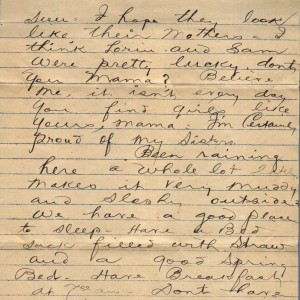 sure. I hope they look
like their Mothers. I
think Lorin and Sam
were pretty lucky, dont
you Mama? Believe
Me, it isn't every day
you find girls like
yours, mama. I'm Certainly
proud of my Sisters.
Been raining
here a whole lot
Makes it very muddy
and Sloshy outside.
We have a good place
to sleep. Have a Bed
Sack filled with Straw
and a good Spring
Bed. Have Breakfast
at 7 Dont have